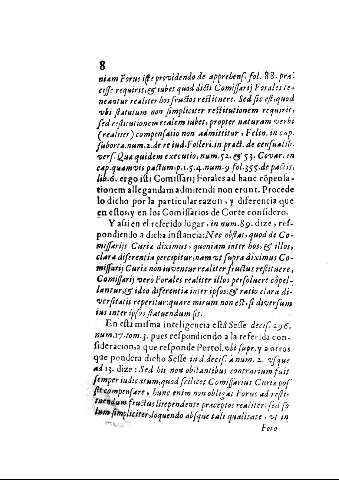 8
niam Forus iste providendo de apprehens. fol. 88. præ-
cisse requirit, & iubet quod dicti Comissarij Forales te-
neantur realiter hos fructos restituere. Sed sic est, quod
vbi statutum non simpliciter restitutionem requirit,
sed restitucionem realem iubet, propter naturam verbi
(realiter) compensatio non admittitur, Felin. in cap.
suborta.num.2.de re iud. Folleri.in pract. de censualib.
vers. Qua quidem executio, num. 52. & 53. Covar. in
cap. quamvis pactum. p. 1. §. 4. num. 9. fol. 355. de pactis,
lib. 6. ergo isti Comissarij Forales ad hanc côpensa-
tionem allegandam admitendi non erunt. Procede
lo dicho por la particular razon, y diferencia que
en estos, y en los Comissarios de Corte considero.
Y assi en el referido lugar, in num. 89. dize, res-
pondiendo a dicha instancia: Nec obstat, quod de Co-
missarijs Curia diximus, quoniam inter hos, & illos,
clara diferentia percipitur; nam vt supra diximus Co-
missarij Curia non iuventur realiter fructus restituere,
Comissarij vero Forales realiter illos persoluere côpel-
lantur, & ideo diferentia inter ipsos, & ratio clara di-
versitatis reperitur; quare mirum non est, si diversum
ius inter ipsos statuendum sit.
En esta misma inteligencia està Sesse decis. 296.
num. 17. tom. 3. pues respondiendo a la referida con-
sideracion, a que responde Portol. vbi supr. y a otros
que pondera dicho Sesse in d. decis. à num. 2. vsque
ad 13. dize: Sed his non obstantibus contrarium fuit
semper iudicatum, quod scilicet Comissarius Curia pos-
sit compensare, hunc enim non obligat Forus ad resti-
tuendum fructus stipendente præceptos realiter, sed so-
lum simpliciter, loquendo absque tale qualitate, vt in
Foro